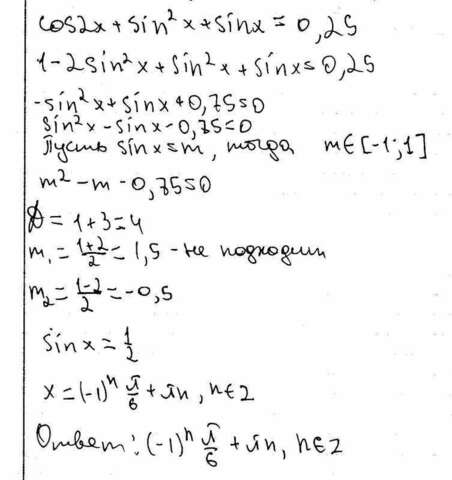 cos2x + sin²x + sinx = 0,25
1-2sin²x + sin²x + sinx = 0,25
-sin²x + sinx + 0,75 = 0
sin²x - sinx - 0,75 = 0
Пусть sinx = m, тогда m∈[-1;1]
m² - m - 0,75 = 0
D = 1+3 = 4
m₁ = (1+2)/2 = 1,5 - не подходит
m₂ = (1-2)/2 = -0,5
sin x = 1/2
x = (-1)ⁿ π/6 + πn, n∈Z
Ответ: (-1)ⁿ π/6 + πn, n∈Z